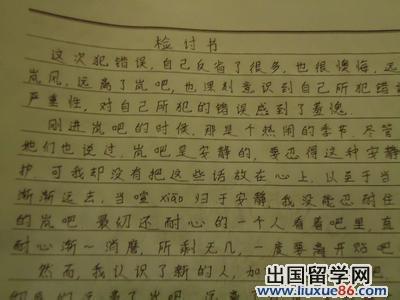 检讨书
这次犯错误,自己反省了很多,也很懊悔,远
岚风,远离了岚吧,也深刻意识到自己所犯错误
严重性,对自己所犯的错误感到了羞愧
刚进岚吧的时候,那是个热闹的季节,尽管
她们也说过,岚吧是安静的,要忍得这种安静
护,可我却没有把这些话放在心上,以至于当
渐渐远去,当喧xiāo归于安静,我没能忍耐住
的岚吧,最初还耐心的一个人看着吧里,直
耐心渐~消磨,所剩无几,一度要离开贴吧
然而,我认识了新的人,加
远离了岚吧
出国留学网
www.liuxue86.com